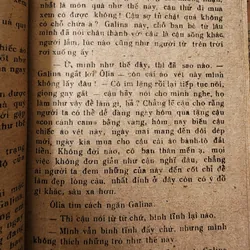 nhất là món quà như thế này, cậu thử đi mua
xem có được không! Cậu sợ tớ chật quá không
có chỗ chứa à? Galina này, chỗ bạn bè ta nói
mình đã nhận thách thức với là cậu sống khác
người lắm, lúc nào cũng như người từ trên trời
rơi xuống ấy!
— Ừ, mình như thế đấy, thì đã sao nào. —
Galina ngắt lời Ôlia — còn cái áo vét này mình
không lấy đâu! — Cô im lặng rồi lại tiếp tục nói,
giọng quy gãi: — Cậu hãy nói cho mình nghe,
làm như vậy để làm gì, hả? Chẳng lẽ cậu cho rằng
người ta có thể dễ dàng ngày hôm qua tặng cậu
soon canh cams bằng nhung, hôm nay biếu chiếc
áo vét này, ngày mai mang đến đôi dép
mới, ngày kia mua cho cậu cái áo banh-tô đắt
tiền. Không đời nào. Khi bạn thân mến ạ, mọi
việc không đơn giản như cậu nghĩ đâu, chẳng
ai người ta đem những của này đến cốt chỉ để
làm đẹp lòng cậu, nhất định ở đây còn có ý đồ
gì khác, sâu xa hơn.
Ôlia tìm cách ngăn Galina.
— Thì cậu nói từ từ chứ, bình tĩnh lại nào.
— Mình vẫn bình tĩnh đấy chứ, nhưng mình
không thích những trò như thế này.